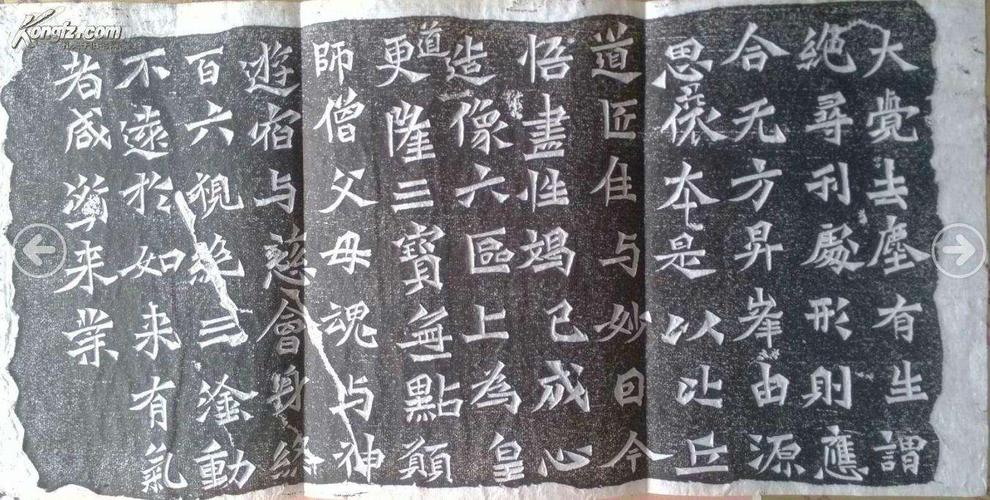 大覺去塵有生謂
絕尋利處形則應
合无方昇峯由源
思依本是以比丘
道匠住与妙囙今
悟盡性竭己成心
造像六區上為皇
道更隆三寶無點願
師僧父母魂与神
遊宿与慈會身終
百六視絕三塗動
不遠於如来有氣
者咸資来業
Kongfz.com